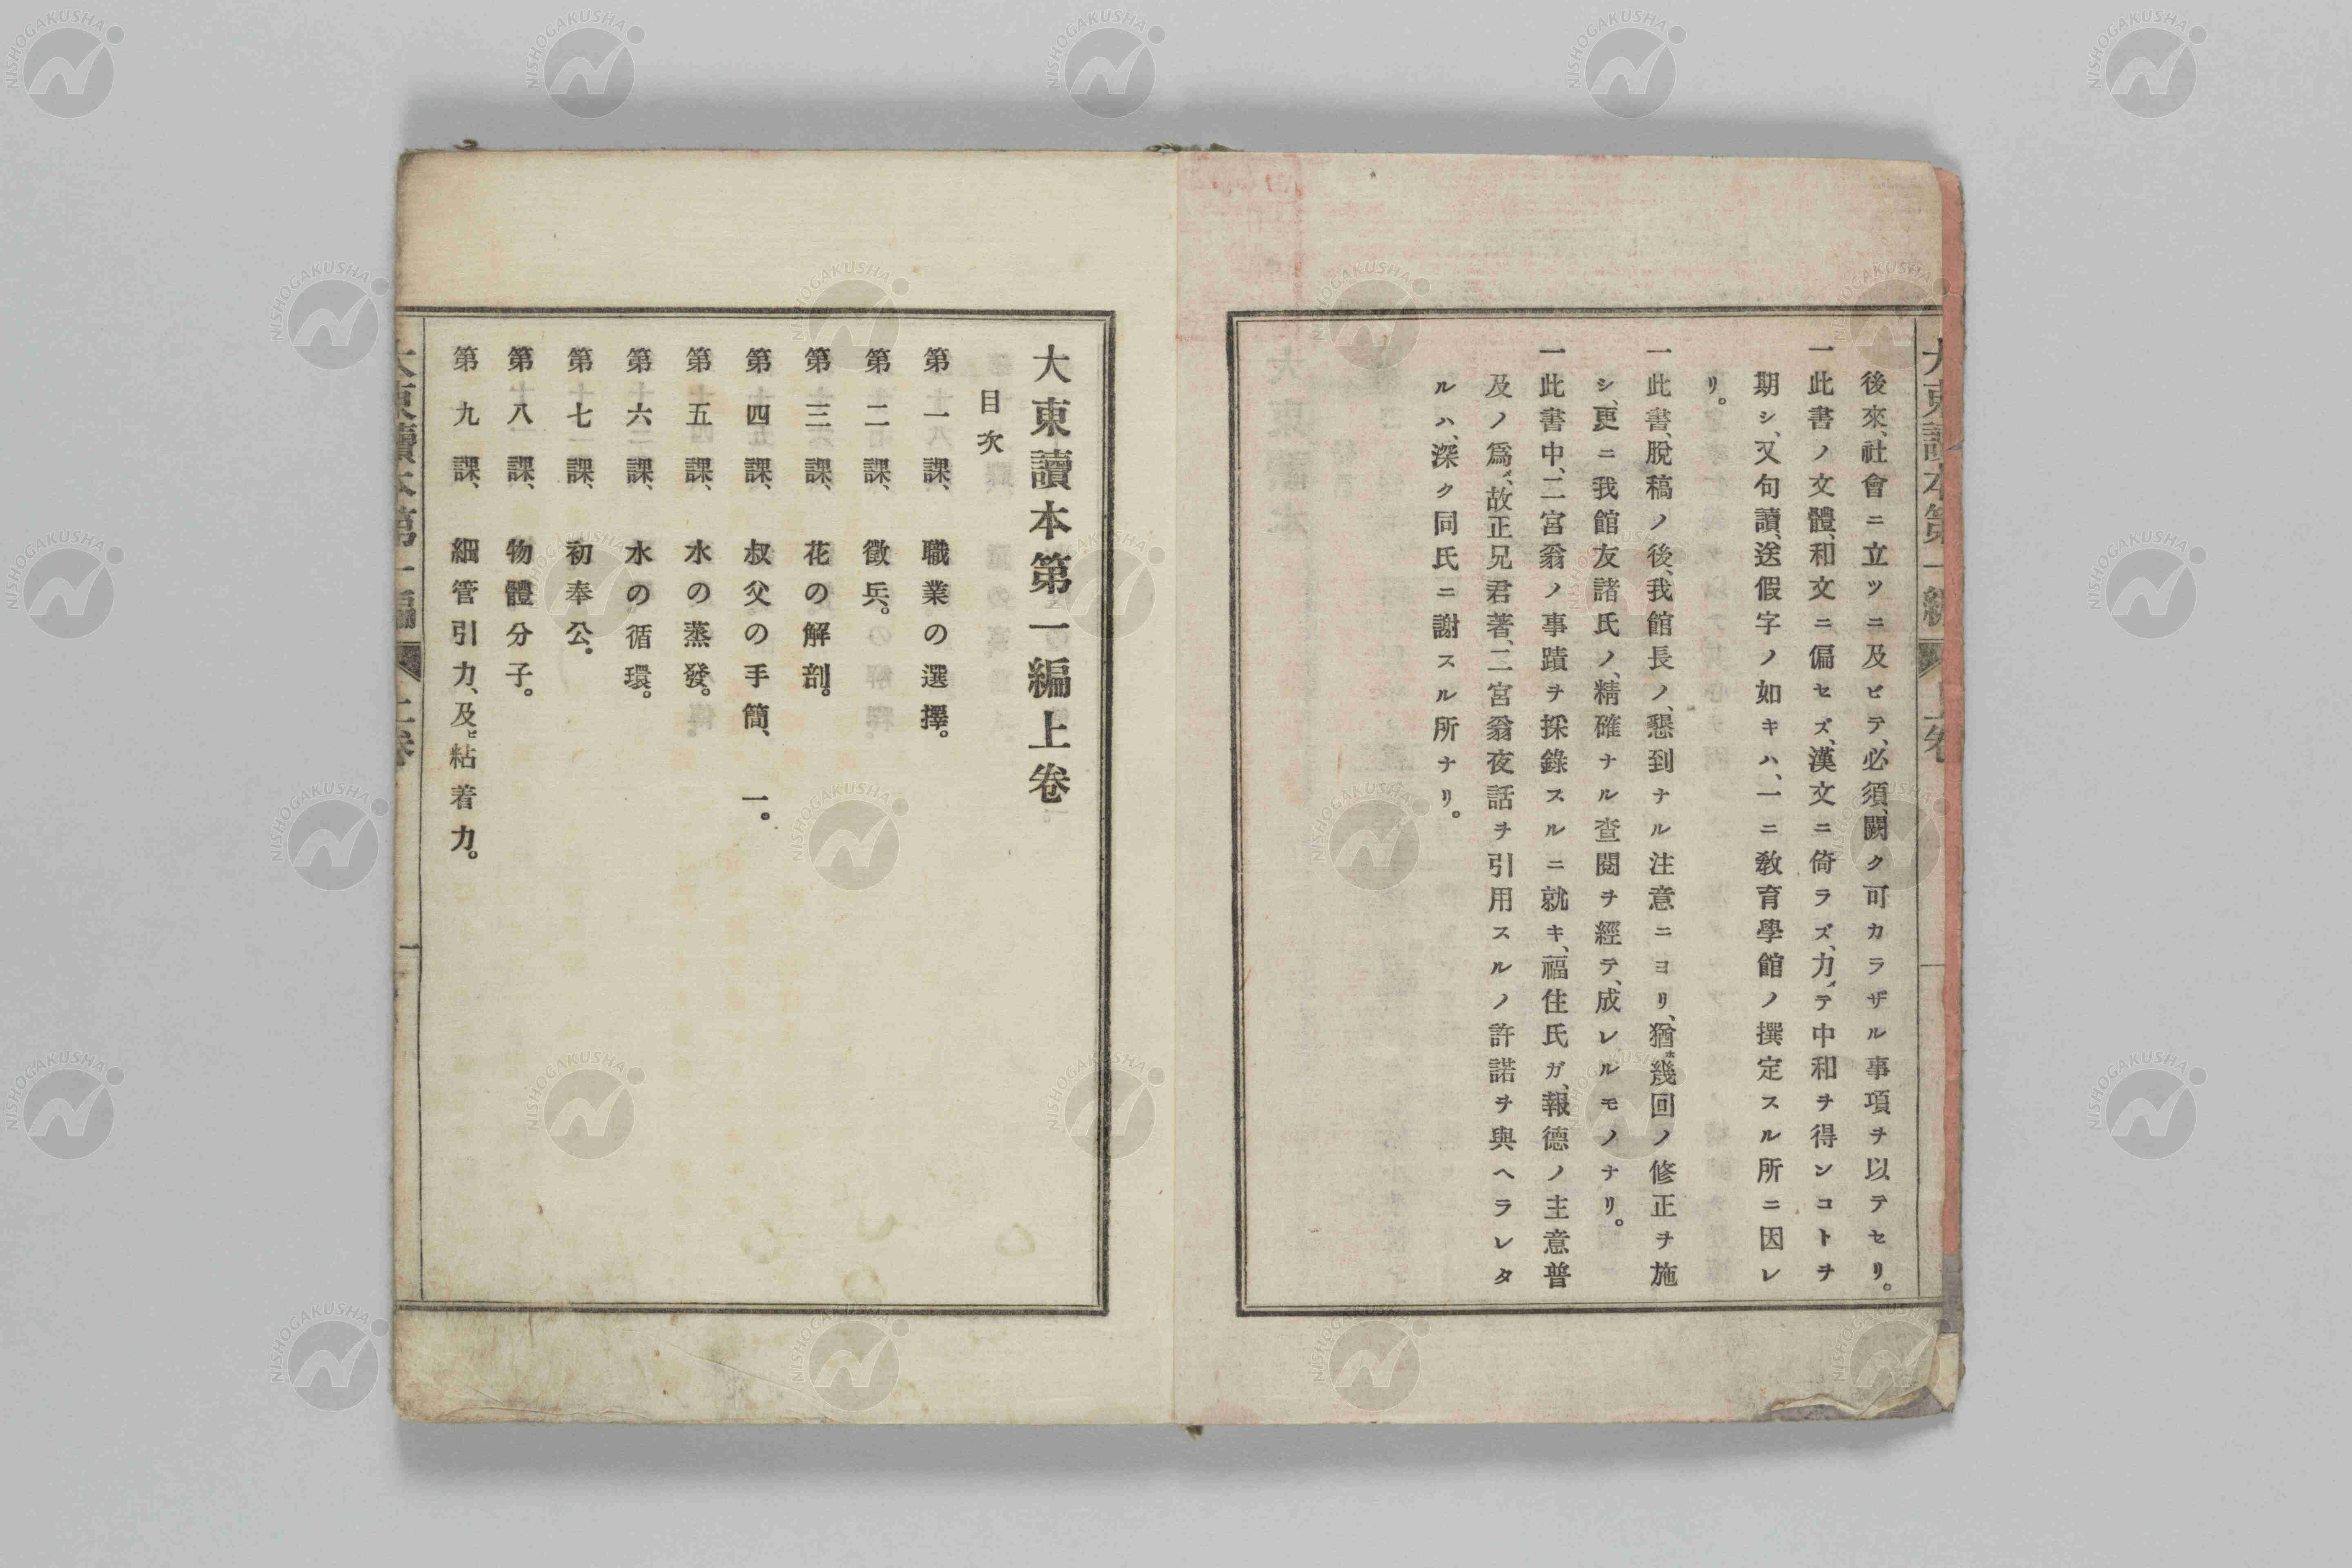 後來、社會ニ立ツニ及ビテ、必須、闕ク可カラザル事項ヲ以テセリ。
一此書ノ文體、和文ニ偏セズ、漢文ニ倚ラズ、力メテ中和ヲ得ンコトヲ
期シ、又句讀、送假字ノ如キハ、一ニ敎育學館ノ撰定スル所ニ因レ
リ。
一此書、脫稿ノ後、我館長ノ、懇到ナル注意ニヨリ、猶ホ幾回ノ修正ヲ施
シ、更ニ我館友諸氏ノ、精確ナル查閱ヲ經テ、成レルモノナリ。
一此書中、二宮翁ノ事蹟ヲ採錄スルニ就キ、福住氏ガ、報德ノ主意普
及ノ爲メ、故正兄君著、二宮翁夜話ヲ引用スルノ許諾ヲ與ヘラレタ
ルハ、深ク同氏ニ謝スル所ナリ。
大東讀本第一編上卷
目次
第一課、職業の選擇。
第二課、徵兵。
第三課、花の解剖。
第四課、叔父の手簡、一。
第五課、水の蒸發。
第六課、水の循環。
第七課、初奉公。
第八課、物體分子。
第九課、細管引力、及ビ粘着力。
大東讀本第一編 上卷 一
NISHOGAKUSHA